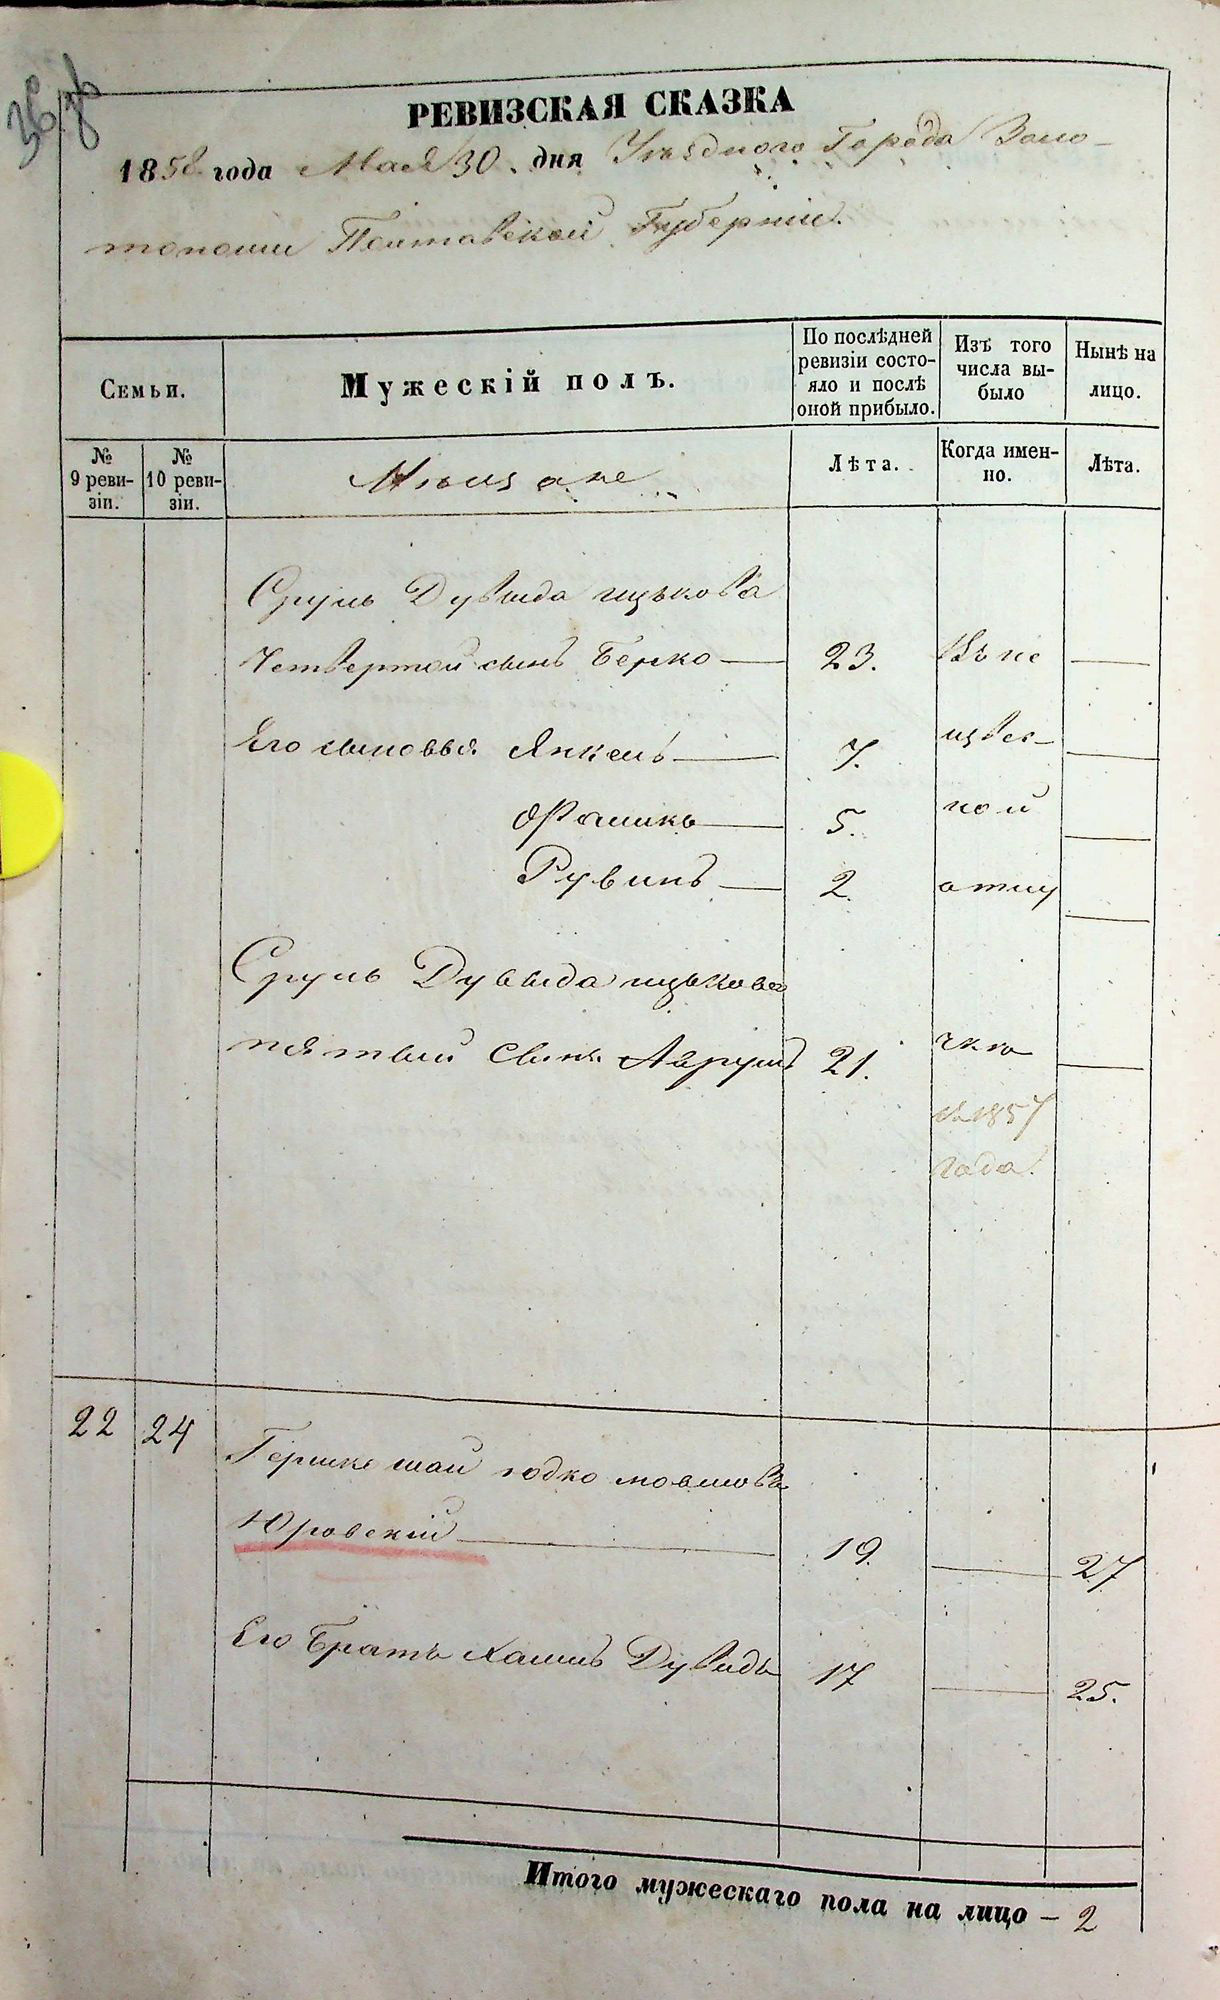 РЕВИЗСКАЯ СКАЗКА
1858 года Мая 30. дня Уѣзднаго Города Золо-
тоноши Полтавской Губерніи.
Семьи.
Мужескій полъ.
По послѣдней ревизіи состо-
яло и послѣ оной прибыло.
Изъ того числа вы-
было
Нынѣ на лицо.
№ 9 реви-
зіи.
№ 10 реви-
зіи.
Мѣщане
Лѣта.
Когда имен-
но.
Лѣта.
Сруль Дувида ицькова
Четвертой сынъ Берко 23. Въ не
Его сыновья Янкель 7. извес-
5. ной
Рувинъ 2. отлу
Сруль Дувида ицькова
пятый сынъ Аврумъ 21. чкѣ
съ 1857
года.
22 24 Гершко шай юдко мовшовъ
Юровскій 19. 27
Его братъ хаимъ Дувидъ 17 25.
Итого мужескаго пола на лицо – 2